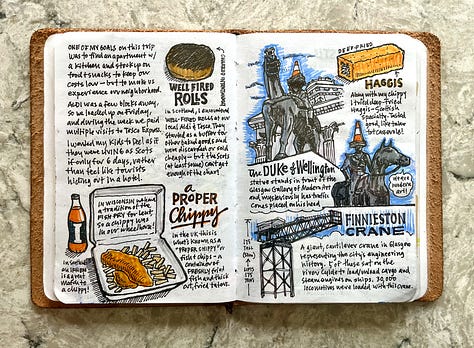 ONE OF MY GOALS ON THIS TRIP
WAS TO FIND AN APARTMENT W/
A KITCHEN and STOCK UP ON
FOOD & SNACKS TO KEEP OUR
COSTS LOW — BUT TO MAKE US
EXPERIENCE OUR NEIGHBORHOOD.
ALDI WAS A FEW BLOCKS AWAY,
SO WE HEADED ON FRIDAY,
AND DURING THE WEEK WE PAID
MULTIPLE VISITS TO TESCO EXPRESS.
I WANTED MY KIDS TO FEEL AS IF
THEY WERE LIVING AS SCOTS
IF ONLY FOR 6 DAYS, RATHER
THAN FEEL LIKE TOURISTS
HIDING OUT IN A HOTEL.
WELL FIRED
ROLLS
IN SCOTLAND, I ENCOUNTERED
WELL-FIRED ROLLS AT OUR
LOCAL ALDI & TESCO. THEY
STARTED AS A BUFFER FOR
OTHER BAKED GOODS AND
WERE DISCARDED OR SOLD
CHEAPLY — BUT THE SCOTS
(AT LEAST SOME) CAN'T GET
ENOUGH OF THE CHAR!
IN WISCONSIN WE HAVE
A TRADITION OF THE
FISH FRY FOR LENT
SO A CHIPPY WAS
IN OUR WHEELHOUSE!
A
PROPER
Chippy
IN THE UK THIS IS
WHAT'S KNOWN AS A
"PROPER CHIPPY" OR
FISH & CHIPS — A
CONTAINER OF
FRESHLY FRIED
FISH AND THICK
CUT, FRIED TATERS.
DEEP-FRIED
HAGGIS
ALONG WITH MY CHIPPY
I TRIED DEEP-FRIED
HAGGIS — SCOTLAND'S
SPECIALTY. TASTED
GOOD, LIKE TATER
TOT CASSEROLE!
The DUKE of Wellington
STATUE STANDS IN FRONT OF THE
GLASGOW GALLERY OF MODERN ART
AND MYSTERIOUSLY HAS TRAFFIC
CONES PLACED ON HIS HEAD.
FINNIESTON
CRANE
A GIANT, CANTILEVER CRANE IN GLASGOW
REPRESENTING THE CITY'S ENGINEERING
HISTORY. 5 OF THESE SAT ON THE
RIVER CLYDE TO LOAD/UNLOAD CARGO AND
STEAM ENGINES ON SHIPS. 30,000
LOCOMOTIVES WERE LOADED WITH THIS CRANE.